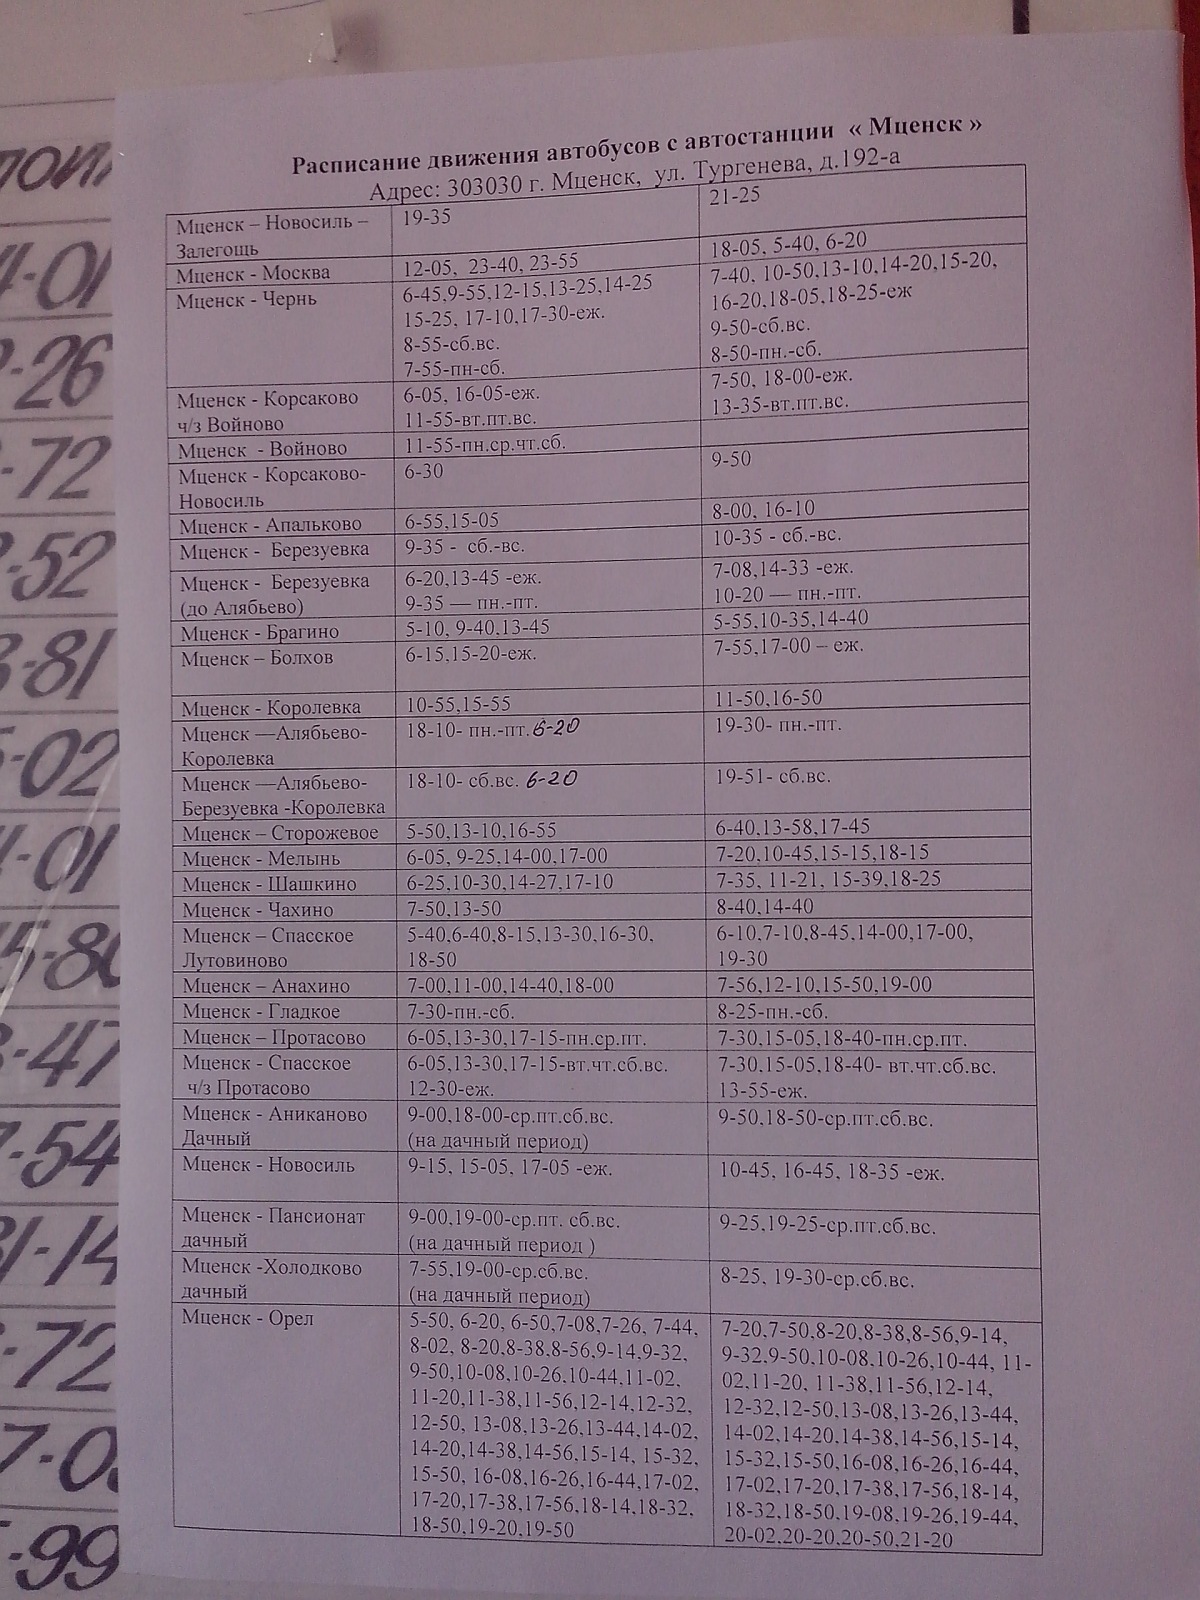 Расписание движения автобусов с автостанции « Мценск »
Адрес: 303030 г. Мценск, ул. Тургенева, д.192-а
Мценск – Новосиль – 19-35 21-25
Залегощь
Мценск - Москва 12-05, 23-40, 23-55 18-05, 5-40, 6-20
Мценск - Чернь 6-45,9-55,12-15,13-25,14-25 7-40, 10-50,13-10,14-20,15-20,
15-25, 17-10,17-30-еж. 16-20,18-05,18-25-еж
8-55-сб.вс. 9-50-сб.вс.
7-55-пн-сб. 8-50-пн.-сб.
Мценск - Корсаково 6-05, 16-05-еж. 7-50, 18-00-еж.
ч/з Войново 11-55-вт.пт.вс. 13-35-вт.пт.вс.
Мценск - Войново 11-55-пн.ср.чт.сб.
Мценск - Корсаково- 6-30 9-50
Новосиль
Мценск - Апальково 6-55,15-05 8-00, 16-10
Мценск - Березуевка 9-35 - сб.-вс. 10-35 - сб.-вс.
Мценск - Березуевка 6-20,13-45 -еж. 7-08,14-33 -еж.
(до Алябьево) 9-35 — пн.-пт. 10-20 — пн.-пт.
Мценск - Брагино 5-10, 9-40,13-45 5-55,10-35,14-40
Мценск – Болхов 6-15,15-20-еж. 7-55,17-00 – еж.
Мценск - Королевка 10-55,15-55 11-50,16-50
Мценск —Алябьево- 18-10- пн.-пт. 6-20 19-30- пн.-пт.
Королевка
Мценск —Алябьево- 18-10- сб.вс. 6-20 19-51- сб.вс.
Березуевка -Королевка
Мценск – Сторожевое 5-50,13-10,16-55 6-40,13-58,17-45
Мценск - Мелынь 6-05, 9-25,14-00,17-00 7-20,10-45,15-15,18-15
Мценск - Шашкино 6-25,10-30,14-27,17-10 7-35, 11-21, 15-39,18-25
Мценск - Чахино 7-50,13-50 8-40,14-40
Мценск – Спасское 5-40,6-40,8-15,13-30,16-30, 6-10,7-10,8-45,14-00,17-00,
Лутовиново 18-50 19-30
Мценск – Анахино 7-00,11-00,14-40,18-00 7-56,12-10,15-50,19-00
Мценск - Гладкое 7-30-пн.-сб. 8-25-пн.-сб.
Мценск – Протасово 6-05,13-30,17-15-пн.ср.пт. 7-30,15-05,18-40-пн.ср.пт.
Мценск - Спасское 6-05,13-30,17-15-вт.чт.сб.вс. 7-30,15-05,18-40- вт.чт.сб.вс.
ч/з Протасово 12-30-еж. 13-55-еж.
Мценск - Аниканово 9-00,18-00-ср.пт.сб.вс. 9-50,18-50-ср.пт.сб.вс.
Дачный (на дачный период)
Мценск - Новосиль 9-15, 15-05, 17-05 -еж. 10-45, 16-45, 18-35 -еж.
Мценск - Пансионат 9-00,19-00-ср.пт. сб.вс. 9-25,19-25-ср.пт.сб.вс.
дачный (на дачный период )
Мценск -Холодково 7-55,19-00-ср.сб.вс. 8-25, 19-30-ср.сб.вс.
дачный (на дачный период)
Мценск - Орел 5-50, 6-20, 6-50,7-08,7-26, 7-44, 7-20,7-50,8-20,8-38,8-56,9-14,
8-02, 8-20,8-38,8-56,9-14,9-32, 9-32,9-50,10-08,10-26,10-44, 11-
9-50,10-08,10-26,10-44,11-02, 02,11-20, 11-38,11-56,12-14,
11-20,11-38,11-56,12-14,12-32, 12-32,12-50,13-08,13-26,13-44,
12-50, 13-08,13-26,13-44,14-02, 14-02,14-20,14-38,14-56,15-14,
14-20,14-38,14-56,15-14, 15-32, 15-32,15-50,16-08,16-26,16-44,
15-50, 16-08,16-26,16-44,17-02, 17-02,17-20,17-38,17-56,18-14,
17-20,17-38,17-56,18-14,18-32, 18-32,18-50,19-08,19-26,19-44,
18-50,19-20,19-50 20-02,20-20,20-50,21-20
-26
-72
-52
-81
-02
-01
-47
-54
-14
-72
-99